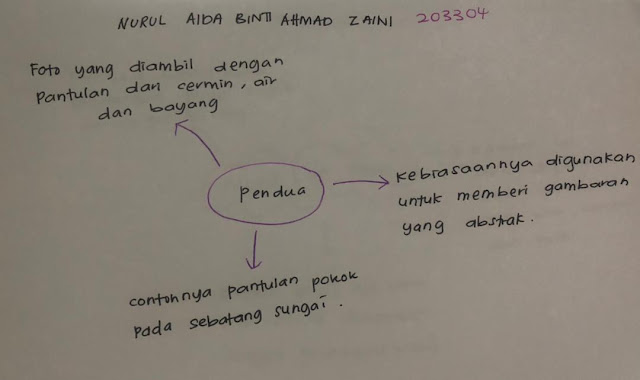 NURUL AIDA BINTI AHMAD ZAINI 203304
Foto yang diambil dengan
Pantulan dan cermin, air
dan bayang
Pendua
kebiasaannya digunakan
untuk memberi gambaran
yang abstrak.
contohnya pantulan pokok
pada sebatang sungai.